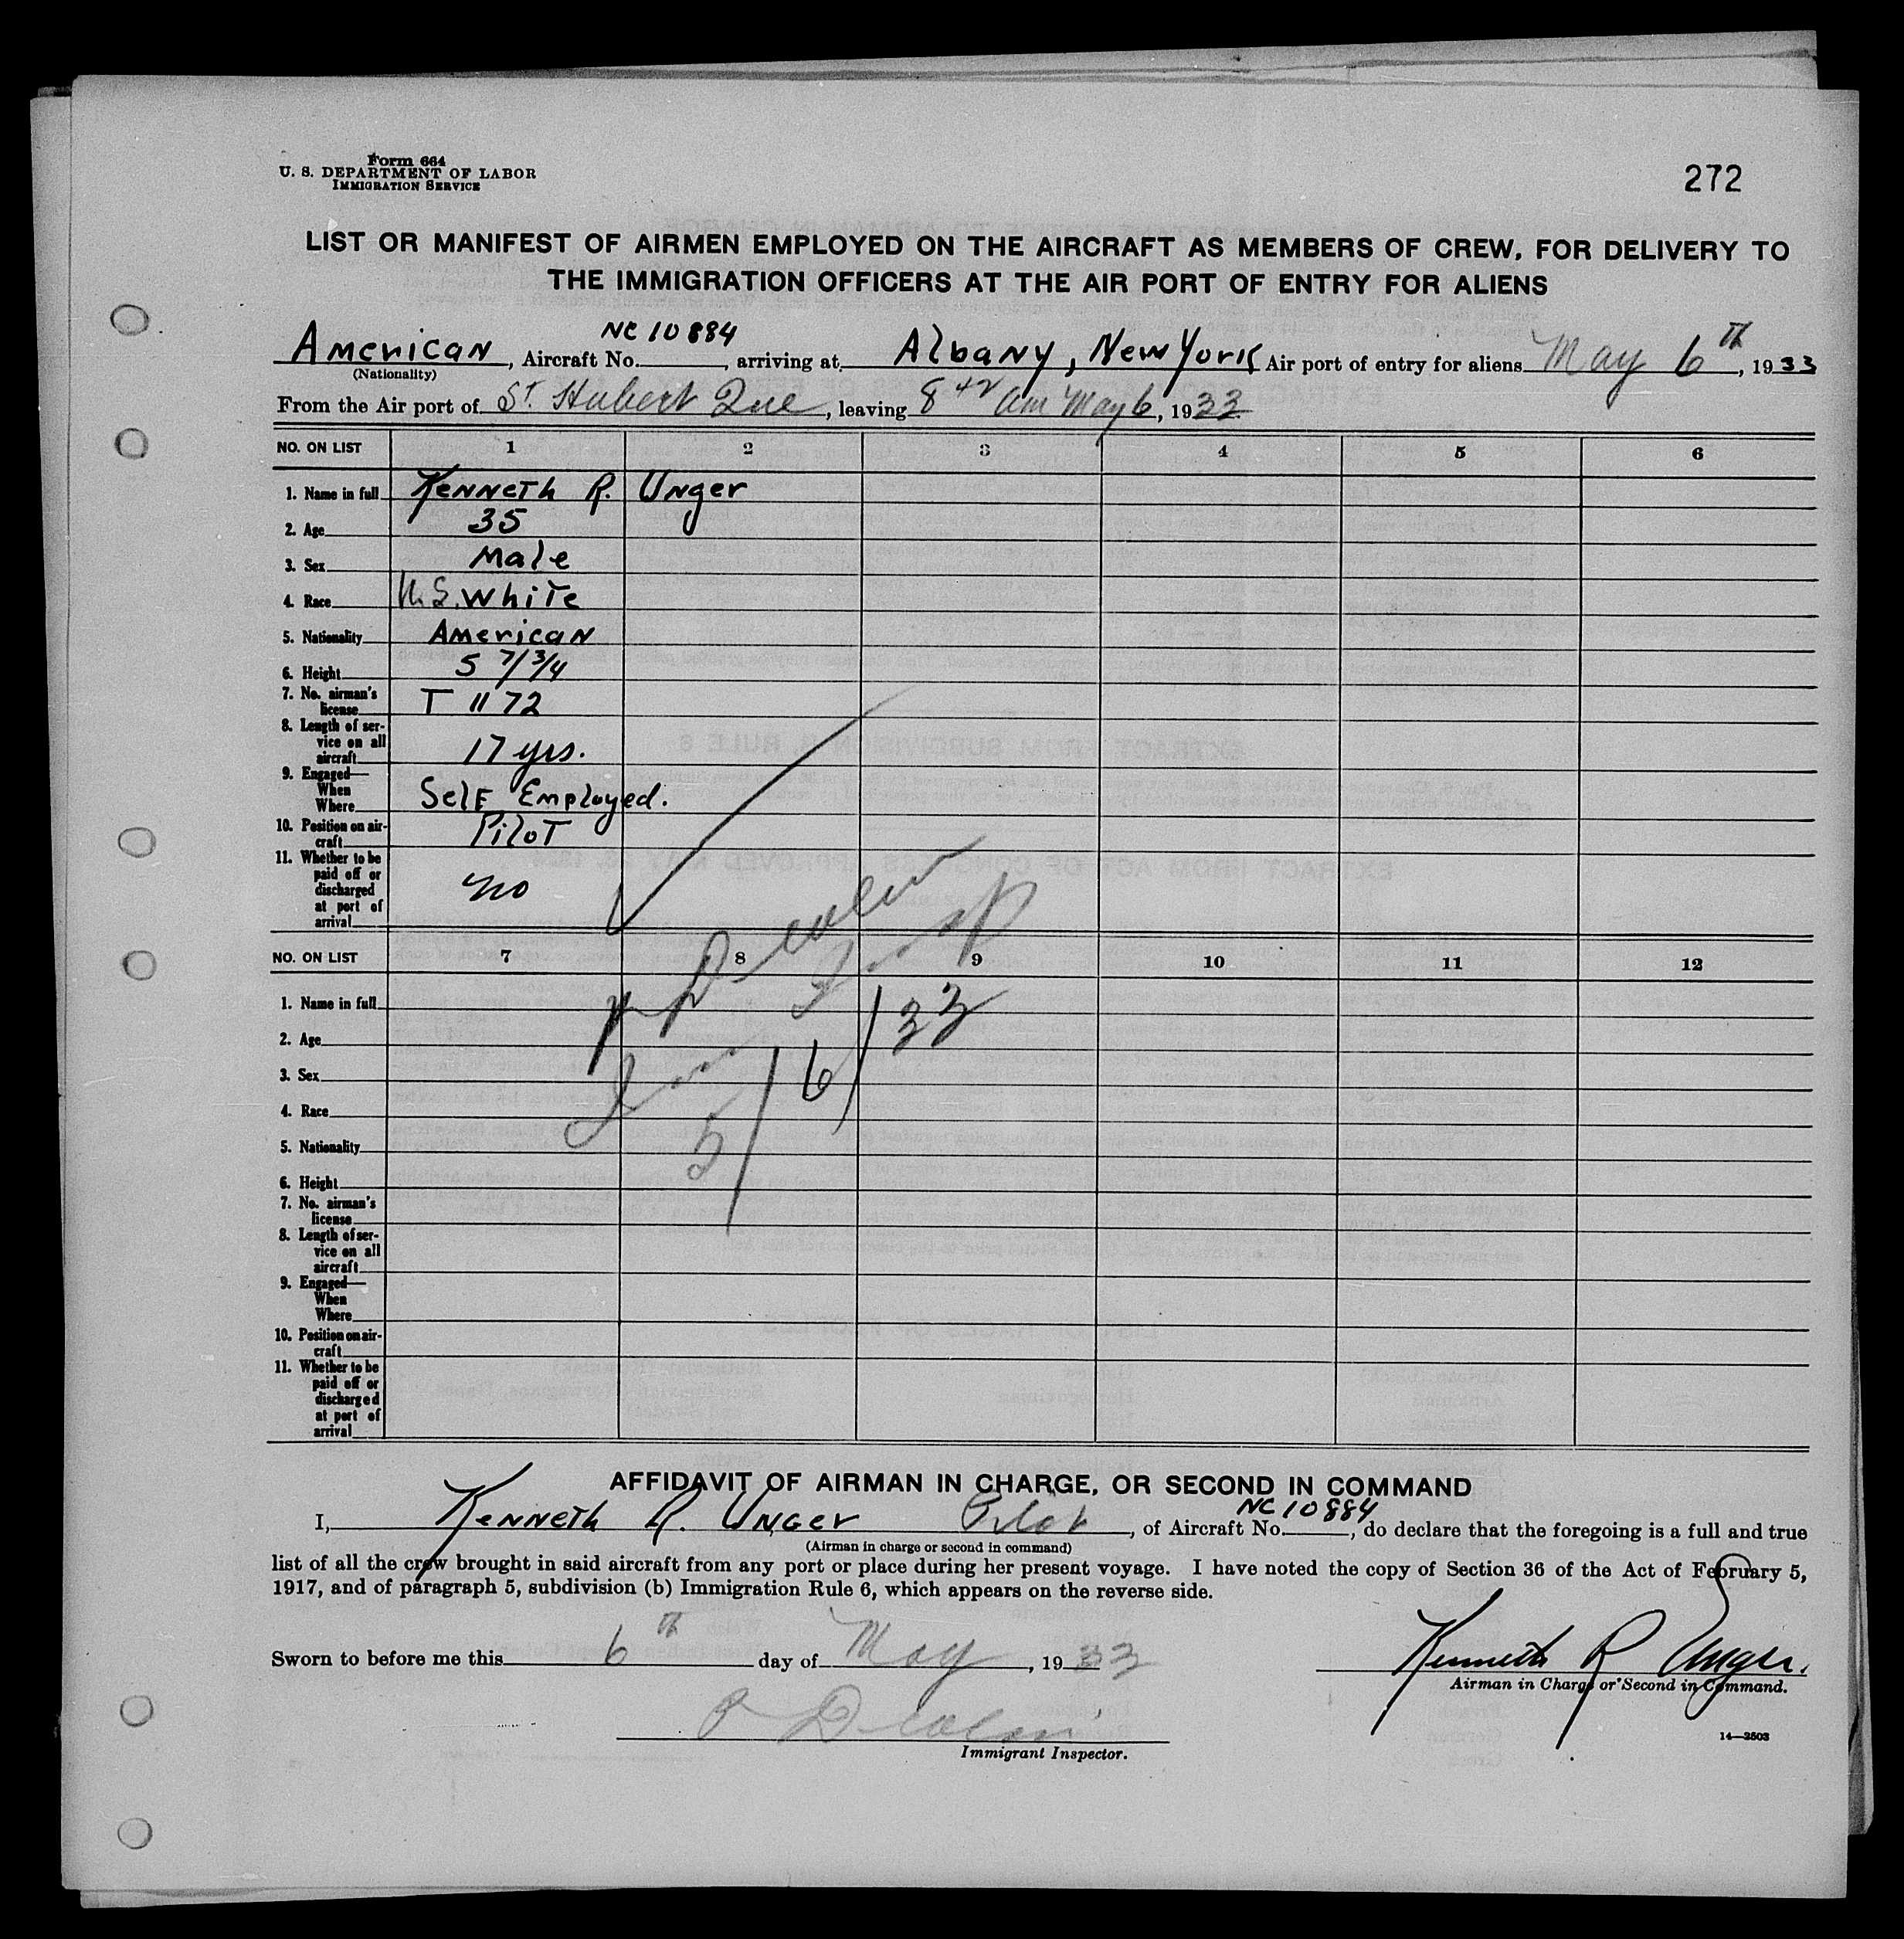 Form 664
U. S. DEPARTMENT OF LABOR
IMMIGRATION SERVICE
272
LIST OR MANIFEST OF AIRMEN EMPLOYED ON THE AIRCRAFT AS MEMBERS OF CREW, FOR DELIVERY TO
THE IMMIGRATION OFFICERS AT THE AIR PORT OF ENTRY FOR ALIENS
American, Aircraft No. NC 10884, arriving at Albany, New York Air port of entry for aliens May 6th, 1933
(Nationality)
From the Air port of St. Hubert Que, leaving 8 42 am May 6, 1933
NO. ON LIST 1 2 3 4 5 6
1. Name in full Kenneth R. Unger
2. Age 35
3. Sex Male
4. Race U.S. White
5. Nationality American
6. Height 5 7/3/4
7. No. airman's
license T 1172
8. Length of ser-
vice on all
aircraft 17 yrs.
9. Engaged—
When
Where Self Employed.
10. Position on air-
craft Pilot
11. Whether to be
paid off or
discharged
at port of
arrival no
NO. ON LIST 7 8 9 10 11 12
1. Name in full
2. Age
3. Sex
4. Race
5. Nationality
6. Height
7. No. airman's
license
8. Length of ser-
vice on all
aircraft
9. Engaged—
When
Where
10. Position on air-
craft
11. Whether to be
paid off or
discharged
at port of
arrival
5/6/33
AFFIDAVIT OF AIRMAN IN CHARGE, OR SECOND IN COMMAND
I, Kenneth R. Unger Pilot, of Aircraft No. NC 10884, do declare that the foregoing is a full and true
(Airman in charge or second in command)
list of all the crew brought in said aircraft from any port or place during her present voyage. I have noted the copy of Section 36 of the Act of February 5,
1917, and of paragraph 5, subdivision (b) Immigration Rule 6, which appears on the reverse side.
Sworn to before me this 6th day of May, 1933
Kenneth R Unger.
Airman in Charge or Second in Command.
Immigrant Inspector.
14—2503